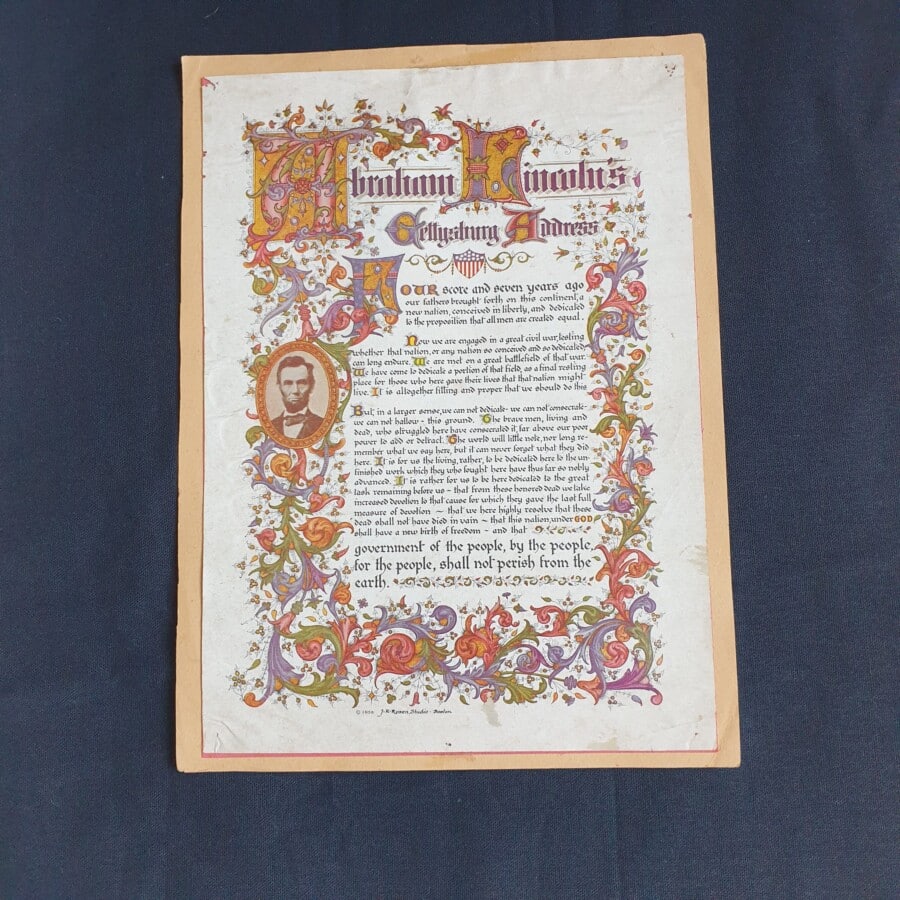 Abraham Lincoln's
Gettysburg Address
FOUR score and seven years ago
our fathers brought forth on this continent, a
new nation, conceived in liberty, and dedicated
to the proposition that all men are created equal.
Now we are engaged in a great civil war, testing
whether that nation, or any nation so conceived and so dedicated,
can long endure. We are met on a great battlefield of that war.
We have come to dedicate a portion of that field, as a final resting
place for those who here gave their lives that that nation might
live. It is altogether fitting and proper that we should do this
But, in a larger sense, we can not dedicate - we can not consecrate -
we can not hallow - this ground. The brave men, living and
dead, who struggled here have consecrated it, far above our poor
power to add or detract. The world will little note, nor long re-
member what we say here, but it can never forget what they did
here. It is for us the living, rather, to be dedicated here to the un-
finished work which they who fought here have thus far so nobly
advanced. It is rather for us to be here dedicated to the great
task remaining before us - that from these honored dead we take
increased devotion to that cause for which they gave the last full
measure of devotion ~ that we here highly resolve that these
dead shall not have died in vain ~ that this nation, under GOD
shall have a new birth of freedom - and that
government of the people, by the people,
for the people, shall not perish from the
earth.
J.R. Rosen, Studio - Boston.